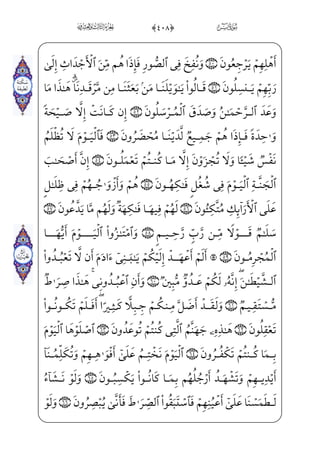 ﴿٤٠٨﴾
أَهْلِهِمْ يَرْجِعُونَ ۝٥٠ وَنُفِخَ فِى ٱلصُّورِ فَإِذَا هُم مِّنَ ٱلْأَجْدَاثِ إِلَىٰ
رَبِّهِمْ يَنسِلُونَ ۝٥١ قَالُوا۟ يَـٰوَيْلَنَا مَنۢ بَعَثَنَا مِن مَّرْقَدِنَا ۜ هَـٰذَا مَا
وَعَدَ ٱلرَّحْمَـٰنُ وَصَدَقَ ٱلْمُرْسَلُونَ ۝٥٢ إِن كَانَتْ إِلَّا صَيْحَةً
وَٰحِدَةً فَإِذَا هُمْ جَمِيعٌ لَّدَيْنَا مُحْضَرُونَ ۝٥٣ فَٱلْيَوْمَ لَا تُظْلَمُ
نَفْسٌ شَيْـًٔا وَلَا تُجْزَوْنَ إِلَّا مَا كُنتُمْ تَعْمَلُونَ ۝٥٤ إِنَّ أَصْحَـٰبَ
ٱلْجَنَّةِ ٱلْيَوْمَ فِى شُغُلٍ فَـٰكِهُونَ ۝٥٥ هُمْ وَأَزْوَٰجُهُمْ فِى ظِلَـٰلٍ
عَلَى ٱلْأَرَآئِكِ مُتَّكِـُٔونَ ۝٥٦ لَهُمْ فِيهَا فَـٰكِهَةٌ وَلَهُم مَّا يَدَّعُونَ ۝٥٧
سَلَـٰمٌ قَوْلًا مِّن رَّبٍّ رَّحِيمٍ ۝٥٨ وَٱمْتَـٰزُوا۟ ٱلْيَوْمَ أَيُّهَا
ٱلْمُجْرِمُونَ ۝٥٩ ۞ أَلَمْ أَعْهَدْ إِلَيْكُمْ يَـٰبَنِىٓ ءَادَمَ أَن لَّا تَعْبُدُوا۟
ٱلشَّيْطَـٰنَ ۖ إِنَّهُۥ لَكُمْ عَدُوٌّ مُّبِينٌ ۝٦٠ وَأَنِ ٱعْبُدُونِى ۚ هَـٰذَا صِرَٰطٌ
مُّسْتَقِيمٌ ۝٦١ وَلَقَدْ أَضَلَّ مِنكُمْ جِبِلًّا كَثِيرًا ۖ أَفَلَمْ تَكُونُوا۟
تَعْقِلُونَ ۝٦٢ هَـٰذِهِۦ جَهَنَّمُ ٱلَّتِى كُنتُمْ تُوعَدُونَ ۝٦٣ ٱصْلَوْهَا ٱلْيَوْمَ
بِمَا كُنتُمْ تَكْفُرُونَ ۝٦٤ ٱلْيَوْمَ نَخْتِمُ عَلَىٰٓ أَفْوَٰهِهِمْ وَتُكَلِّمُنَآ
أَيْدِيهِمْ وَتَشْهَدُ أَرْجُلُهُم بِمَا كَانُوا۟ يَكْسِبُونَ ۝٦٥ وَلَوْ نَشَآءُ
لَطَمَسْنَا عَلَىٰٓ أَعْيُنِهِمْ فَٱسْتَبَقُوا۟ ٱلصِّرَٰطَ فَأَنَّىٰ يُبْصِرُونَ ۝٦٦ وَلَوْ